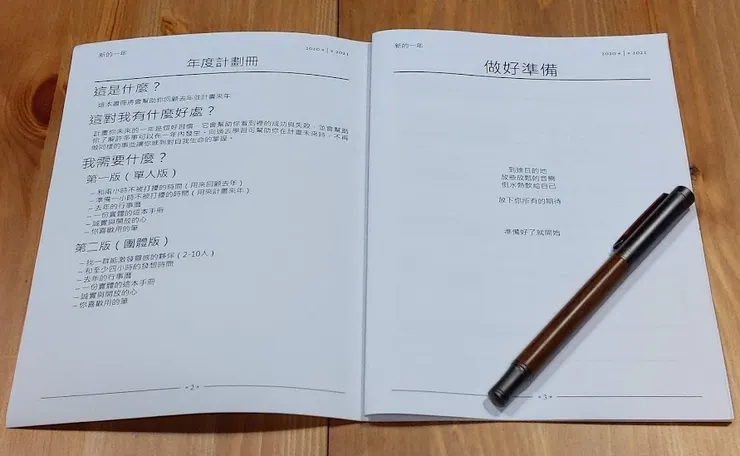 新的一年
2020 « | » 2021
年度計劃冊
這是什麼？
這本書冊將會幫助你回顧去年並計畫來年
這對我有什麼好處？
計畫你未來的一年是個好習慣，它會幫助你看到裡的成功與失敗，並會幫助
你了解許多事可以在一年內發生。向過去學習可幫助你在計畫未來時，不再
做同樣的事並讓你感到對自我生命的掌握。
我需要什麼？
第一版（單人版）
–和兩小時不被打擾的時間（用來回顧去年）
–準備一小時不被打擾的時間（用來計畫來年）
–去年的行事曆
–一份實體的這本手冊
–誠實與開放的心
–你喜歡用的筆
第二版（團體版）
–找一群能激發靈感的夥伴（2-10人）
–和至少四小時的發想時間
–去年的行事曆
–一份實體的這本手冊
–誠實與開放的心
–你喜歡用的筆
• 2 •
新的一年
2020 « | » 2021
做好準備
到達目的地
放些放鬆的音樂
倒水熱飲給自己
放下你所有的期待
準備好了就開始
• 3 •